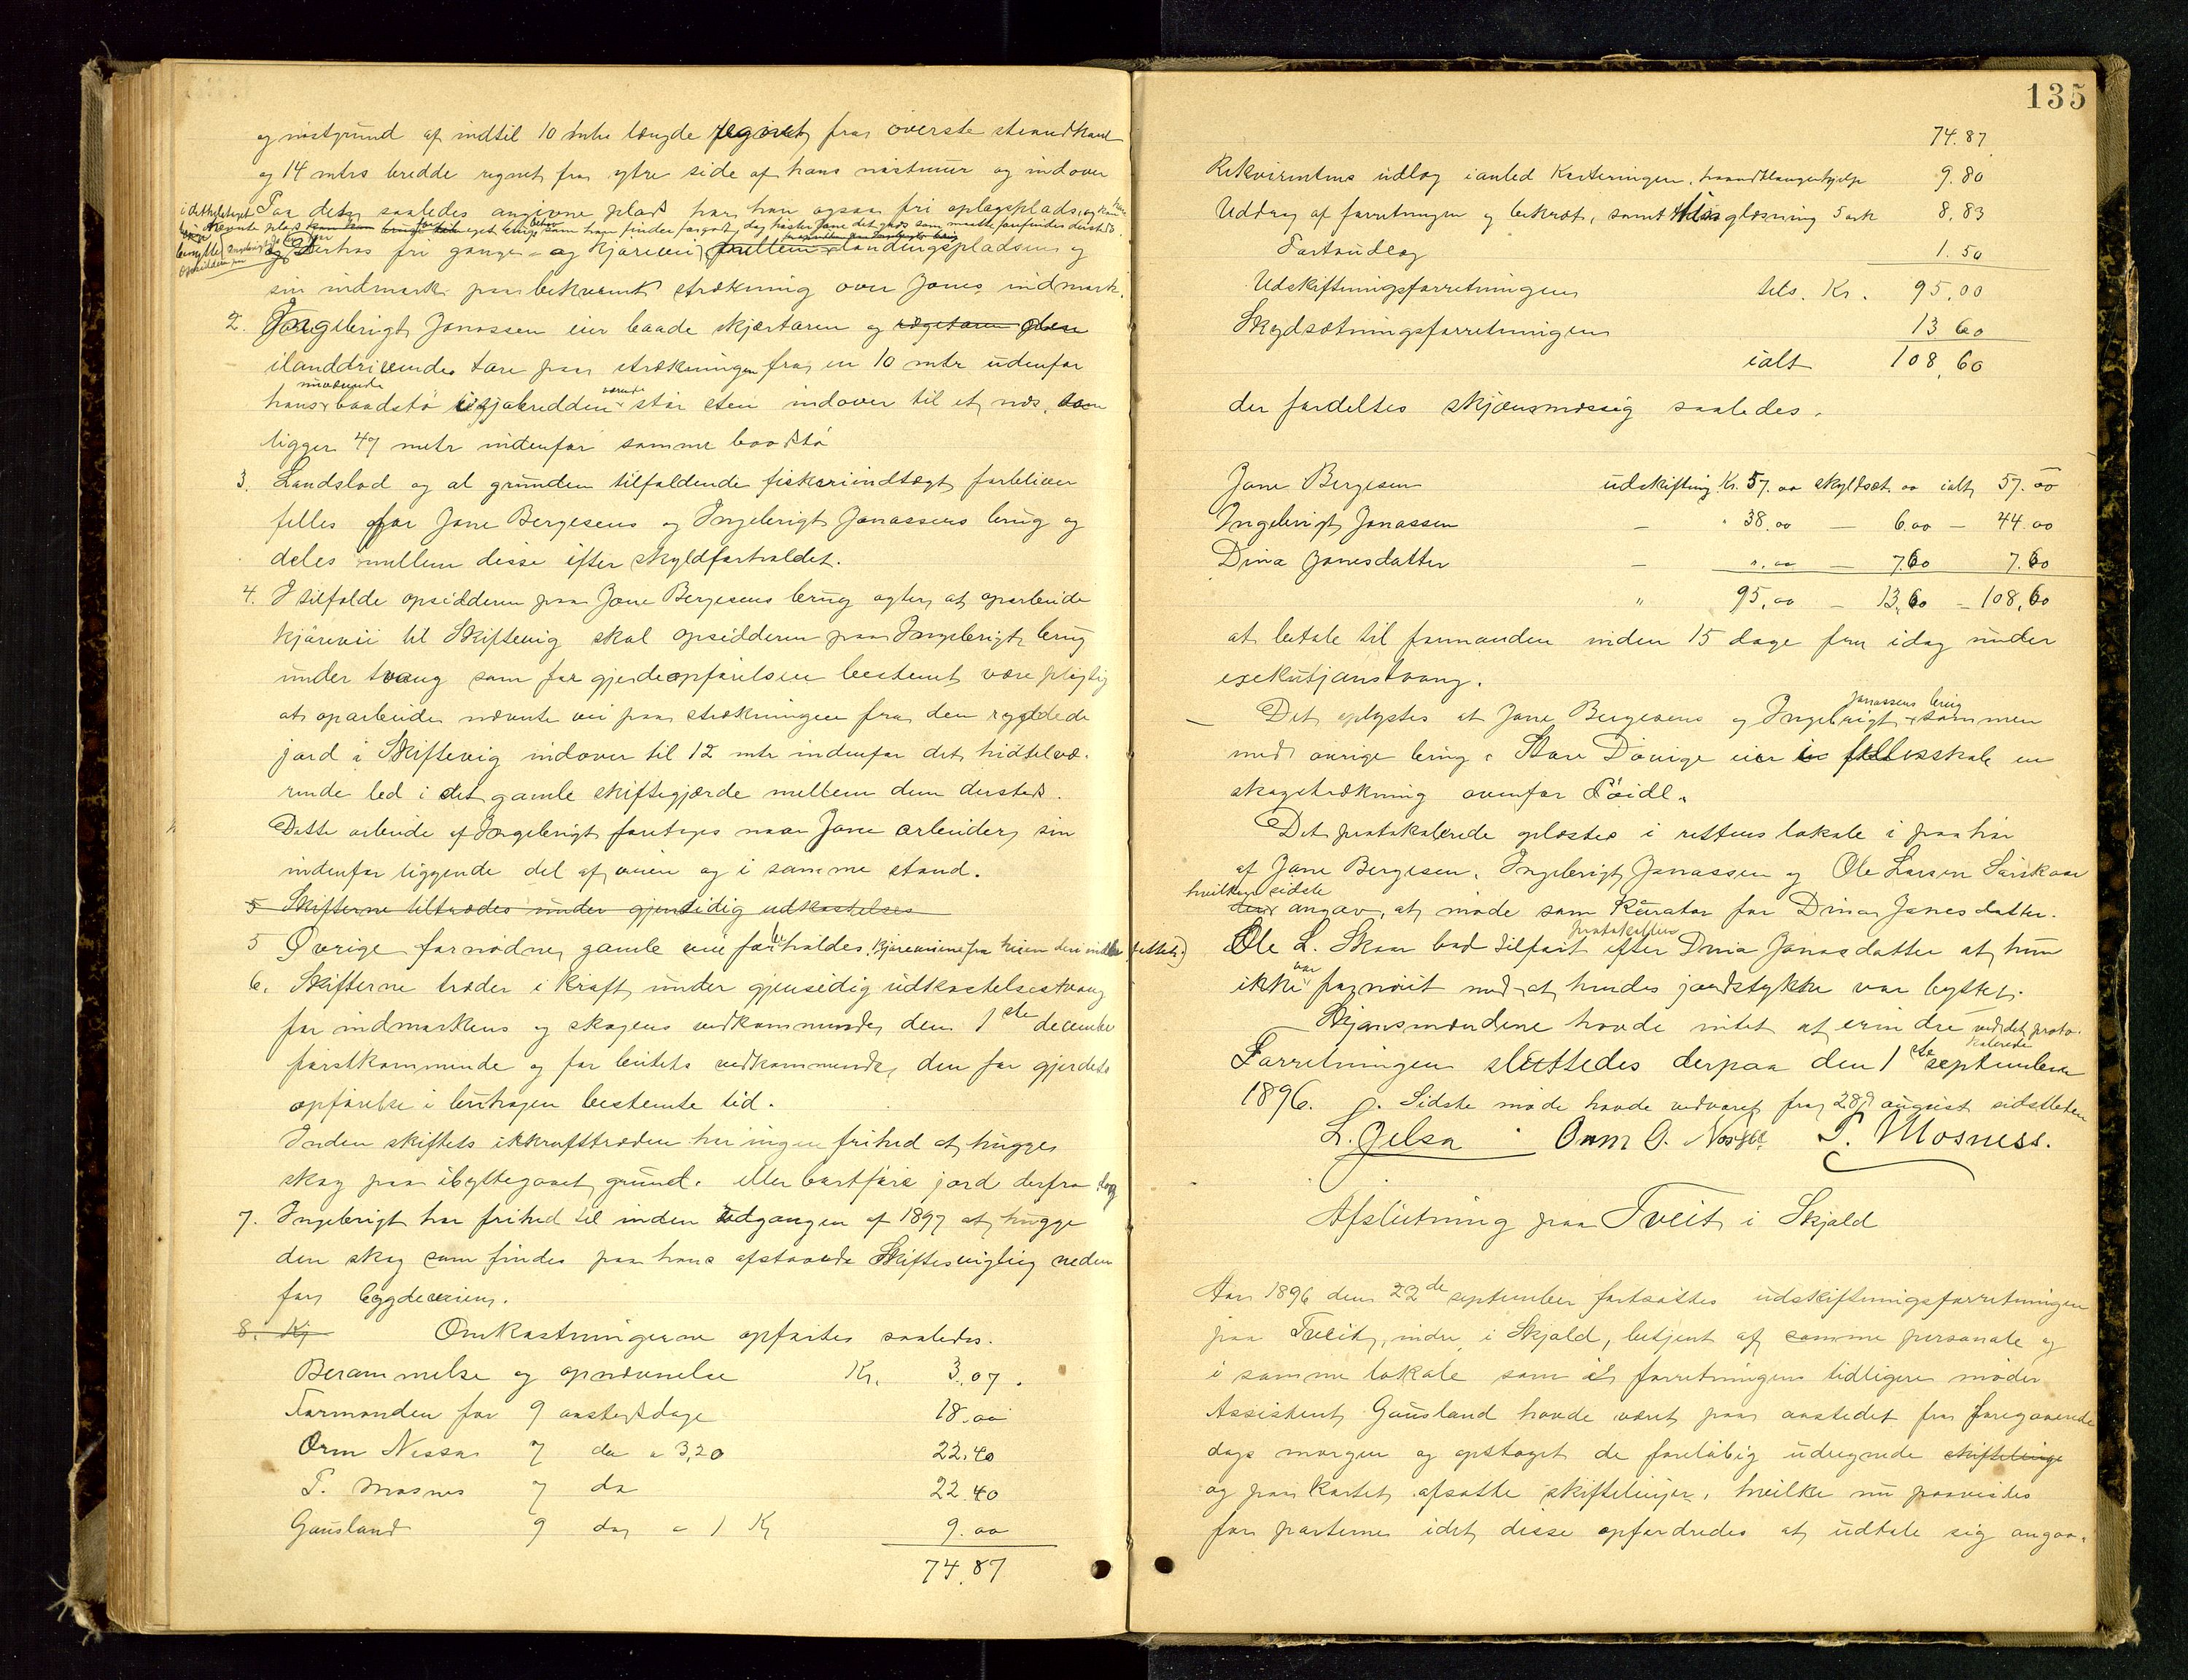 og nöstgrund af indtil 10 mtrs længde regnet fra överste strandkant
og 14 mtrs bredde regnet fra ytre side af hans nöstmuur og indover
Paa den saaledes angivne plads har han ogsaa fri oplagsplads, og kan
nævnte plads
og derhos fri gange- og kjörevei mellem landingspladsen og
sin indmark paa bekvemt strækning over Jones indmark.
2. Ingebrigt Jonassen eier baade skjærtaren og
ilanddrivende tare paa strækningen fra en 10 mtr udenfor
hans nuværende baadstö
ligger 47 metr indenfor samme baadstö
3. Landslod og al grunden tilfaldende fiskeriindtægt forbliver
felles for Jone Bergesens og Ingebrigt Jonassens brug og
deles mellem disse efter skyldforholdet.
4. I tilfælde opsidderen paa Jone Bergesens brug agter at oparbeide
kjörevei til Skiftevig skal opsidderen paa Ingebrigts brug
under tvang som for gjerdeopförelsen bestemt være pligtig
at oparbeide nævnte vei paa strækningen fra den ryddede
jord i Skiftevig indover til 12 mtr indenfor det hidtilvæ-
rende led i det gamle skiftegjærde mellem dem dersteds.
Dette arbeide af Ingebrigt foretages naar Jone arbeider sin
indenfor liggende del af veien og i samme stand.
5 Skifterne tiltrædes under gjensidig udkastelses
5 Övrige fornödne gamle veie forbeholdes.
6. Skifterne træder i kraft under gjensidig udkastelsestvang
for indmarkens og skogens vedkommende den 1ste december
förstkommende og for beitets vedkommende den for gjerdets
opförelse i beitehagen bestemte tid.
Inden skiftets ikrafttræden har ingen frihed at hugge
skog paa ibyttegaaet grund. eller bortföre jord derfra
7. Ingebrigt har frihed til inden udgangen af 1897 at hugge
den skog som findes paa hans afstaaede Skiftesviglig neden
for bygdeveien.
8. Kj Omkostningerne opförtes saaledes.
Berammelse og opnævnelse Kr. 3,07.
Formanden for 9 aastedsdage 18.00
Orm Nessa 7 do a 3,20 22.40
P. Mosnes 7 do 22.40
Gausland 9 dag a 1 Kr 9.00
74.87
135
74.87
Rekvirentens udlæg i anled Karteringen, haandtlangerhjelp 9.80
Uddrag af forretningen og bekræft, samt thinglæsning 5 ark 8,83
Portoudlæg 1.50
Udskiftningsforretningen tils. Kr. 95,00
Skyldsætningsforretningen 13 60
ialt 108,60
der fordeltes skjönsmæssig saaledes.
Jone Bergesen udskiftning Kr. 57.00 skyldsæt. 00 ialt 57.00
Ingebrigt Jonassen — " 38.00 — 6.00 — 44.00
Dina Jonesdatter — ".00 — 7.60 7.60
" 95,00 — 13,60 — 108,60
at betale til formanden inden 15 dage fra idag under
exekutjonstvang.
Jonassens brug
— Det oplystes at Jone Bergesens og Ingebrigt sammen
med övrige brug i Store Dövige eier i fellesskab en
skogstrækning ovenfor
Det protokolerede oplæstes i rettens lokale i paahör
af Jone Bergesen, Ingebrigt Jonassen og Ole Larsen Sörskaar
hvilken sidste
den angav, at möde som Kurator for Dina Jonesdatter.
protokollen
Ole L. Skaar bad tilföit efter Dina Jonasdatter at hun
ikke var fornöiet med at hendes jordstykke var byttet.
Skjönsmændene havde intet at erindre ved det proto-
kolerede
Forretningen sluttedes derpaa den 1ste september
1896. Sidste möde havde vedvaret fra 28d august sidstleden
L. Jelsa Orm O. Nessa P. Mosness.
Afslutning paa Tveit i Skjold
Aar 1896 den 22de september fortsattes udskiftningsforretningen
paa Tveit, indre, i Skjold, betjent af samme personale og
i samme lokale som i forretningens tidligere möder
Assistent Gausland havde været paa aastedet fra foregaaende
dags morgen og opstaget de foreløbig udregnede skiftelinje
og paa kartet afsatte skiftelinjer, hvilke nu paavistes
for parterne idet disse opfordredes at udtale sig angaa-